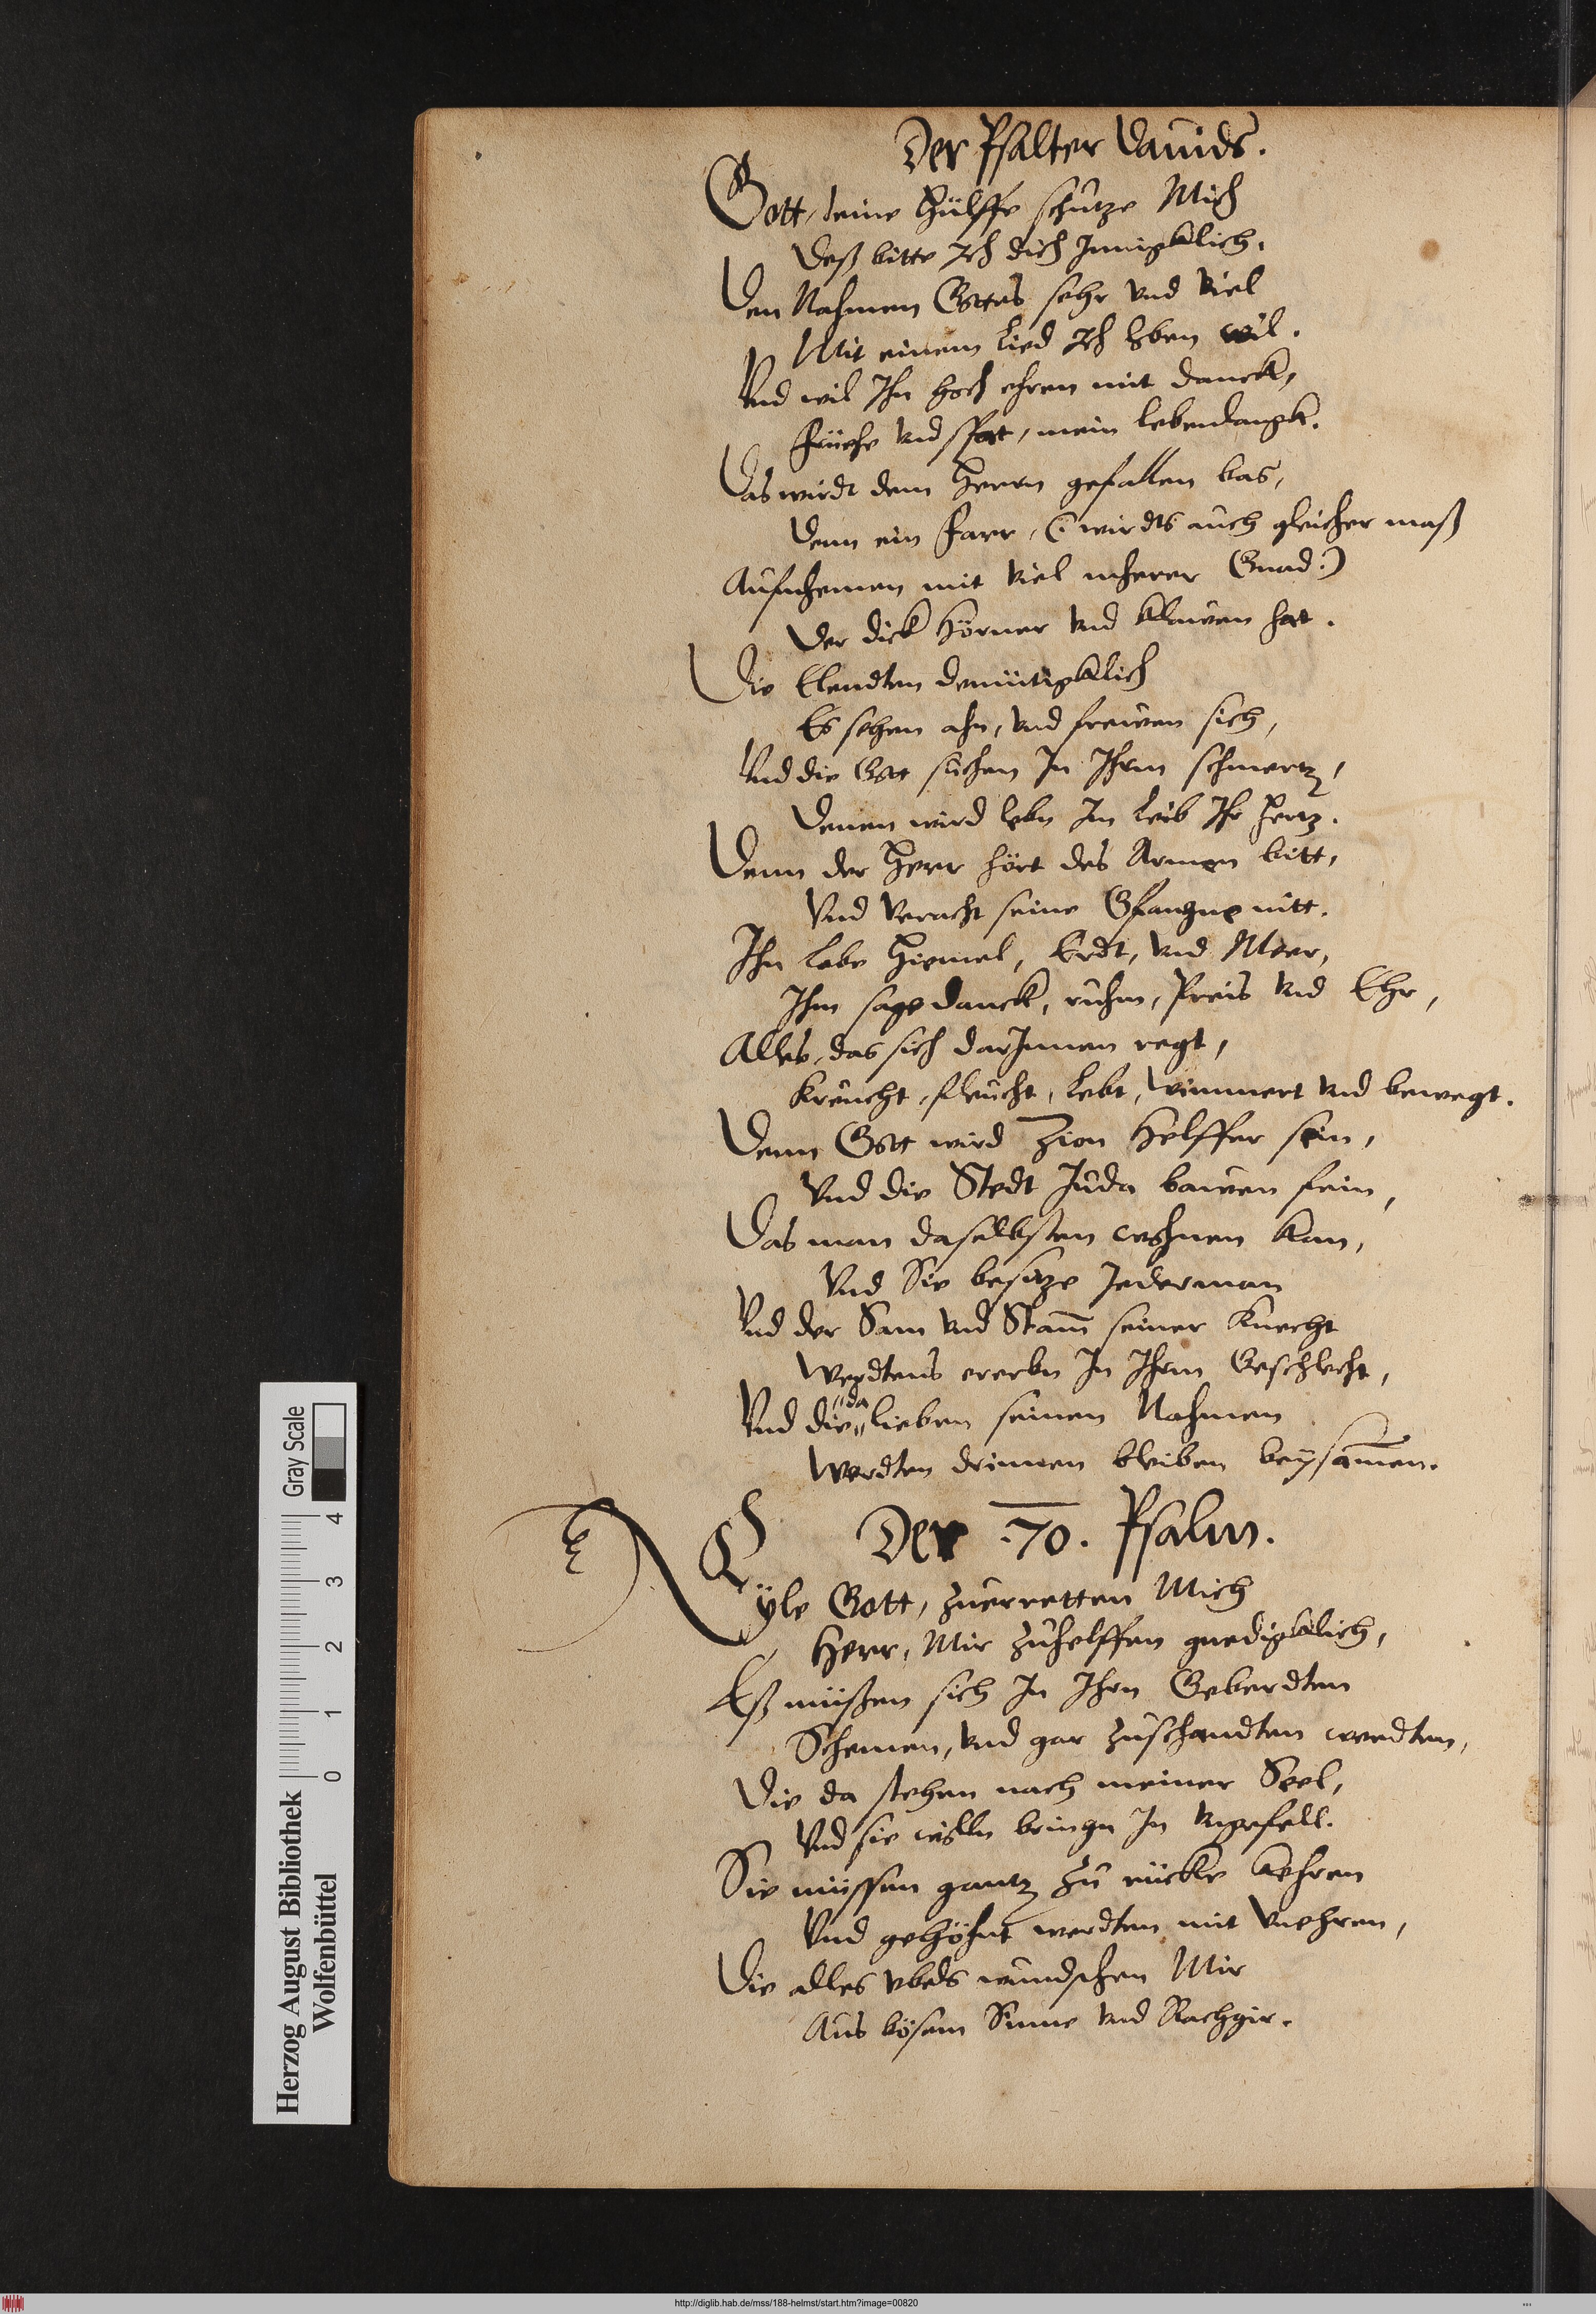 Der Psalter Dauids.
Gott, deine Hülffe schutze Mich
Deß bitte Ich dich Innigklich.
Den Nahmen Gottes sehr vnd viel
Mit einem Lied Ich loben wil.
Vnd wil Ihn hoch ehren mit danck,
Früehe vnd spat, mein lebendangk.
Das wirdt dem Herrn gefallen bas,
Denn ein Farr, (: wirdts auch gleicher maß
Aufnhemen mit viel mherer Gnad:)
Der dick Hörner vnd klawen hat.
Die Elendten demütigklich
Es sehen ahn, vnd frewen sich,
Vnd die Gott suchen In Ihrm schmertz,
Denen wird lebn Im Leib Ihr Hertz.
Denn der Herr hört des Armen bitt,
Vnd veracht seine Gfangne nitt.
Ihn lobe Hiemel, Erdt, vnd Meer,
Ihm sage danck, ruhm, Preis vnd Ehr,
Alles, das sich darInnen regt,
Kreucht, fleucht, lebt, wimmert vnd bewegt.
Denn Gott wird Zion Helffer sein,
Vnd die Stedt Juda bawen fein,
Das man daselbsten wohnen kan,
Vnd Sie besitze Jederman
Vnd der Sam vnd Stam̄ seiner Knecht
Werdtens ererbn In Ihrm Geschlecht,
Vnd die da lieben seinen Nahmen
Werdten drinnen bleiben beysam̄en.
Der .70. Psalm.
Eyle Gott, zuerretten Mich
Herr, Mir zuhelffen gnedigklich,
Eß müßen sich In Ihrn Geberdten
Schemen, vnd gar zuschandten werdten,
Die da stehen nach meiner Seel,
Vnd sie wölln bringn In vngefell.
Sie müssen gantz zu rücke kehren
Vnd gehöhnt werdten mit vnehren,
Die alles vbels wundschen Mir
Aus bösem Sinne vnd Rachgir.
Herzog August Bibliothek
Wolfenbüttel
0 1 2 3 4
Gray Scale
http://diglib.hab.de/mss/188-helmst/start.htm?image=00820